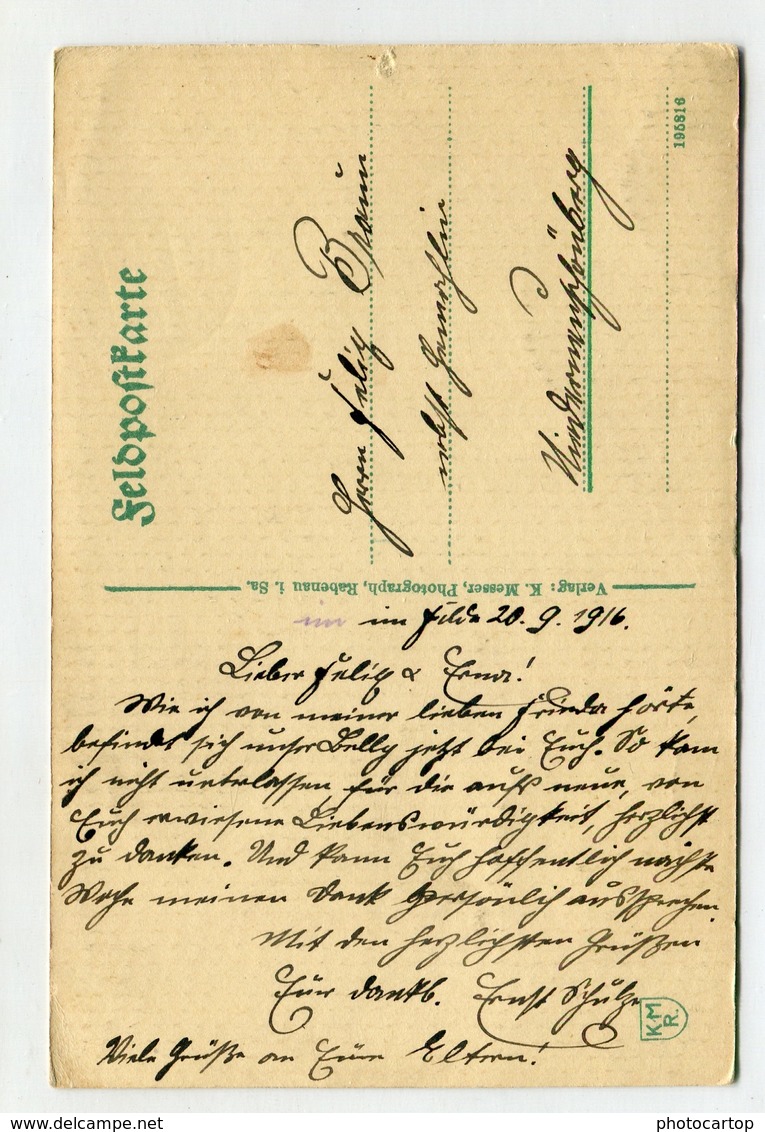 Feldpostkarte
Herrn Felix Braun
nebst Gemahlin
Niederhermsdorf
195816
Verlag: K. Messer, Photograph, Rabenau i. Sa.
im im Felde 20. 9. 1916.
Lieber Felix & Erna!
Wie ich von meiner lieben Frieda hörte,
befindet sich unser Belly jetzt bei Euch. So kann
ich nicht unterlassen, für die aufs neue, von
Euch erwiesene Liebenswürdigkeit, herzlichst
zu danken. Und kann Euch hoffentlich nächste
Woche meinen Dank persönlich aussprechen.
Mit den herzlichsten Grüßen
Euer dankb. Ernst Schulze
Viele Grüße an Eure Eltern!
K.M.
R.
www.delcampe.net
photocartop